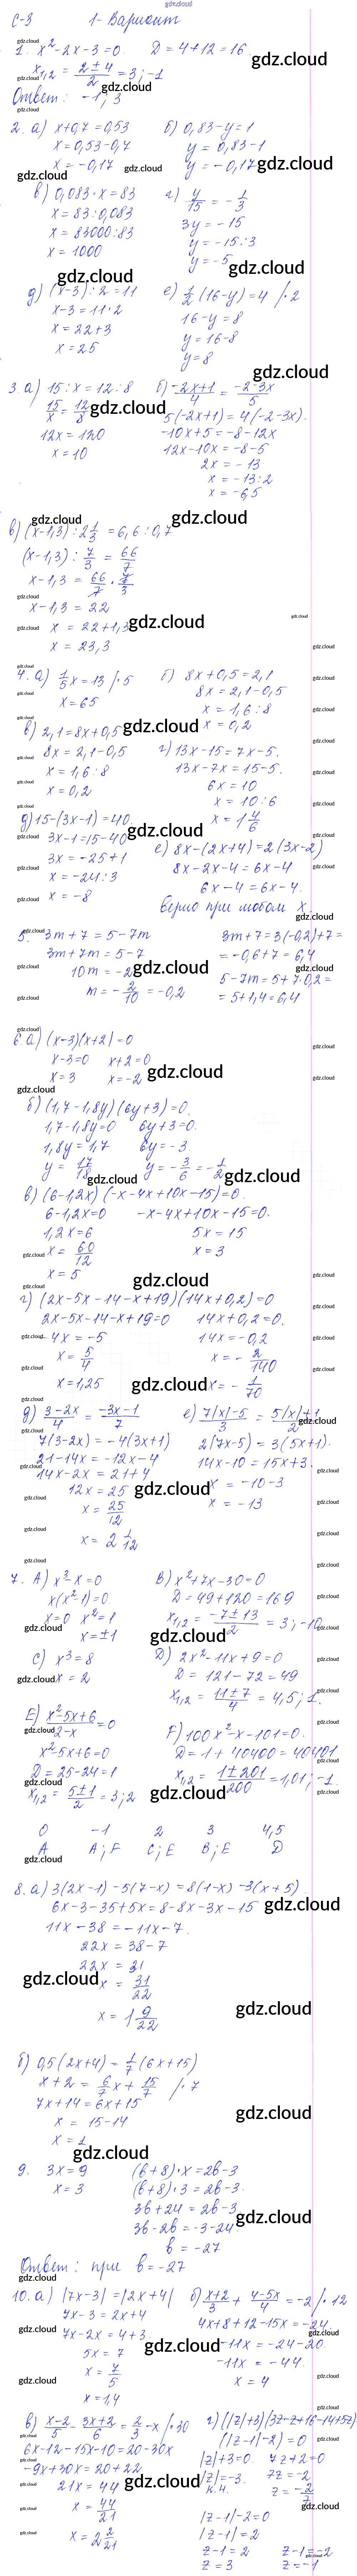 С-3 1-Вариант
1. x² - 2x - 3 = 0. D = 4 + 12 = 16.
x₁,₂ = (2 ± 4)/2 = 3; -1
Ответ: -1; 3
2. а) x + 0,7 = 0,53 б) 0,83 - y = 1
x = 0,53 - 0,7 y = 0,83 - 1
x = -0,17 y = -0,17
в) 0,083 · x = 83 г) y/15 = -1/3
x = 83 : 0,083 3y = -15
x = 83000 : 83 y = -15 : 3
x = 1000 y = -5
д) (x-3) : 2 = 11 е) 1/2 (16-y) = 4 /· 2
x - 3 = 11 · 2 16 - y = 8
x = 22 + 3 y = 16 - 8
x = 25 y = 8
3. а) 15 : x = 12 : 8 б) (-2x+1)/4 = (-2-3x)/5
15/x = 12/8 5(-2x+1) = 4(-2-3x).
12x = 120 -10x + 5 = -8 - 12x
x = 10 12x - 10x = -8 - 5
2x = -13
x = -13 : 2
x = -6,5
в) (x-1,3) : 2 1/3 = 6,6 : 0,7
(x-1,3) : 7/3 = 66/7
x - 1,3 = 66/7 · 7/3
x - 1,3 = 22
x = 22 + 1,3
x = 23,3
4. а) 1/5 x = 13 /· 5 б) 8x + 0,5 = 2,1
x = 65 8x = 2,1 - 0,5
x = 1,6 : 8
в) 2,1 = 8x + 0,5 x = 0,2
8x = 2,1 - 0,5 г) 13x - 15 = 7x - 5.
x = 1,6 : 8 13x - 7x = 15 - 5.
x = 0,2 6x = 10
x = 10 : 6
д) 15 - (3x-1) = 40. x = 1 4/6
3x - 1 = 15 - 40 е) 8x - (2x+4) = 2(3x-2)
3x = -25 + 1 8x - 2x - 4 = 6x - 4
x = -24 : 3 6x - 4 = 6x - 4.
x = -8 верно при любом x.
5. 3m + 7 = 5 - 7m 3m + 7 = 3(-0,2) + 7 =
3m + 7m = 5 - 7 = -0,6 + 7 = 6,4
10m = -2 5 - 7m = 5 + 7 · 0,2 =
m = -2/10 = -0,2 = 5 + 1,4 = 6,4
6. а) (x-3)(x+2) = 0
x - 3 = 0 x + 2 = 0
x = 3 x = -2
б) (1,7 - 1,8y)(6y+3) = 0.
1,7 - 1,8y = 0 6y + 3 = 0.
1,8y = 1,7 6y = -3.
y = 17/18 y = -3/6 = -1/2
в) (6-1,2x)(-x-4x+10x-15) = 0.
6 - 1,2x = 0 -x - 4x + 10x - 15 = 0.
1,2x = 6 5x = 15
x = 60/12 x = 3
x = 5
г) (2x-5x-14-x+19)(14x+0,2) = 0
2x - 5x - 14 - x + 19 = 0 14x + 0,2 = 0.
-4x = -5 14x = -0,2
x = 5/4 x = -2/140
x = 1,25 x = -1/70
д) (3-2x)/4 = (-3x-1)/7 е) (7|x|-5)/3 = (5|x|+1)/2
7(3-2x) = -4(3x+1) 2(7x-5) = 3(5x+1).
21 - 14x = -12x - 4 14x - 10 = 15x + 3.
14x - 2x = 21 + 4 x = -10 - 3
12x = 25 x = -13
x = 25/12
x = 2 1/12
7. A) x³ - x = 0 B) x² + 7x - 30 = 0
x(x²-1) = 0 D = 49 + 120 = 169
x = 0 x² = 1 x₁,₂ = (-7 ± 13)/2 = 3; -10
x = ±1
C) x³ = 8 D) 2x² - 11x + 9 = 0
x = 2 D = 121 - 72 = 49
x₁,₂ = (11 ± 7)/4 = 4,5; 1.
E) (x²-5x+6)/(2-x) = 0 F) 100x² - x - 101 = 0.
x² - 5x + 6 = 0 D = 1 + 40400 = 40401
D = 25 - 24 = 1 x₁,₂ = (1 ± 201)/200 = 1,01; -1.
x₁,₂ = (5 ± 1)/2 = 3; 2
0 -1 2 3 4,5
A A; F C; E B; E D
8. а) 3(2x-1) - 5(7-x) = 8(1-x) - 3(x+5).
6x - 3 - 35 + 5x = 8 - 8x - 3x - 15
11x - 38 = -11x - 7.
22x = 38 - 7
22x = 31
x = 31/22
x = 1 9/22
б) 0,5(2x+4) = 1/7 (6x+15)
x + 2 = 6/7 x + 15/7 /· 7
7x + 14 = 6x + 15
x = 15 - 14
x = 1
9. 3x = 9 (b+8) · x = 2b - 3
x = 3 (b+8) · 3 = 2b - 3.
3b + 24 = 2b - 3
3b - 2b = -3 - 24
b = -27
Ответ: при b = -27
10. а) |7x-3| = |2x+4| б) (x+2)/3 + (4-5x)/4 = -2 /· 12
7x - 3 = 2x + 4 4x + 8 + 12 - 15x = -24.
7x - 2x = 4 + 3. -11x = -24 - 20
5x = 7 -11x = -44.
x = 7/5 x = 4
x = 1,4
в) (x-2)/5 - (3x+2)/6 = 2/3 - x /· 30 г) (|z|+3)(3z-z+16-14+5z)
6x - 12 - 15x - 10 = 20 - 30x (|z-1|-2) = 0
-9x + 30x = 20 + 22 |z| + 3 = 0. 7z + 2 = 0
21x = 44 |z| = -3. 7z = -2
x = 44/21 к.ч. z = -2/7
x = 2 2/21 |z-1| - 2 = 0
|z-1| = 2
z - 1 = 2 z - 1 = -2
z = 3 z = -1
gdz.cloud